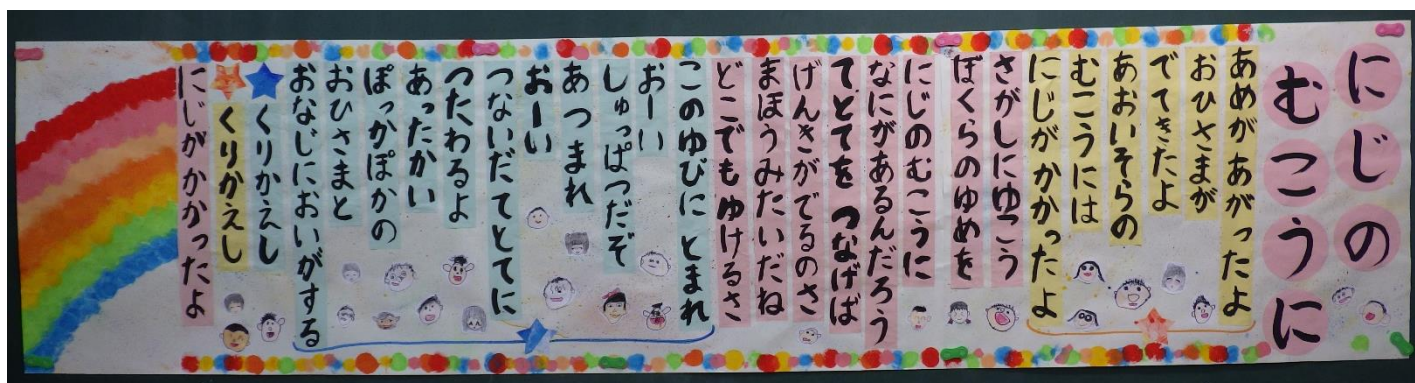 にじの
むこうに
あめがあがったよ
おひさまが
でてきたよ
あおいそらの
むこうには
にじがかかったよ
さがしにゆこう
ぼくらのゆめを
にじのむこうに
なにがあるんだろう
てとてを つなげば
げんきがでるのさ
まほうみたいだね
どこでもゆけるさ
このゆびに とまれ
おーい
しゅっぱつだぞ
あつまれ
おーい
つないだ てとてに
つたわるよ
あったかい
ぽっかぽかの
おひさまと
おなじにおいがする
くりかえし
くりかえし
にじがかかったよ